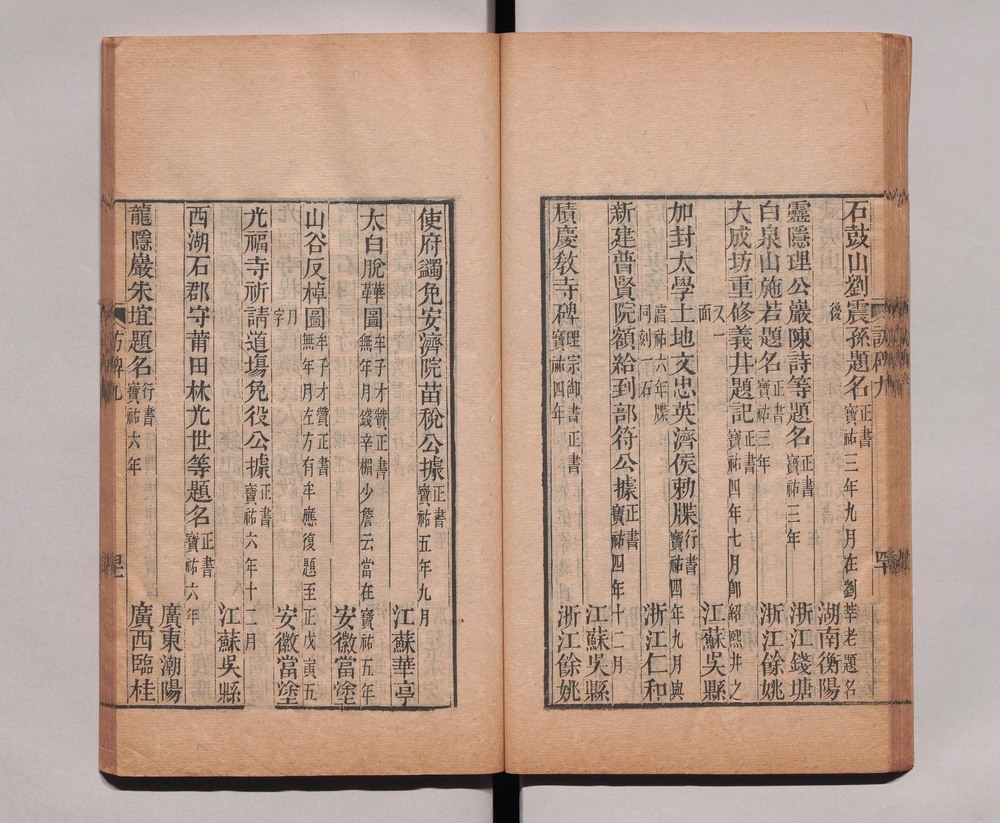 石鼓山劉震孫題名 正書 寶祐三年九月在劉莘老題名後 湖南衡陽
靈隱理公巖陳詩等題名 正書 寶祐三年 浙江錢塘
白泉山施若題名 正書 寶祐三年 浙江餘姚
大成坊重修義井題記 正書 寶祐四年七月卽紹熙井之又一面 江蘇吳縣
加封太學土地文忠英濟侯勅牒 行書 寶祐四年九月與
淳祐六年牒同刻一石 浙江仁和
新建普賢院額給到部符公據 正書 寶祐四年十二月 江蘇吳縣
積慶敎寺碑 理宗御書正書 寶祐四年 浙江餘姚
使府蠲免安濟院苗稅公據 正書 寶祐五年九月 江蘇華亭
太白脫鞾圖 牟子才贊正書 無年月錢辛楣少詹云當在寶祐五年 安徽當塗
山谷反棹圖 牟子才贊正書 無年月左方有牟應復題至正戊寅五月字 安徽當塗
光福寺祈請道場免役公據 正書 寶祐六年十二月 江蘇吳縣
西湖石郡守莆田林光世等題名 正書 寶祐六年 廣東潮陽
龍隱巖朱埴題名 行書 寶祐六年 廣西臨桂